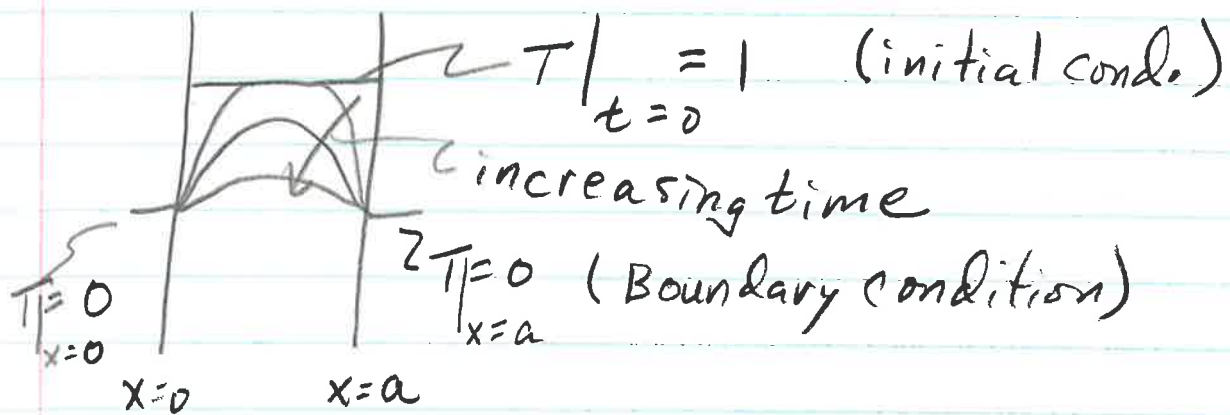 T|t=0 = 1 (initial cond.)
increasing time
T|x=0 = 0
T|x=a = 0 (Boundary condition)
x=0 x=a